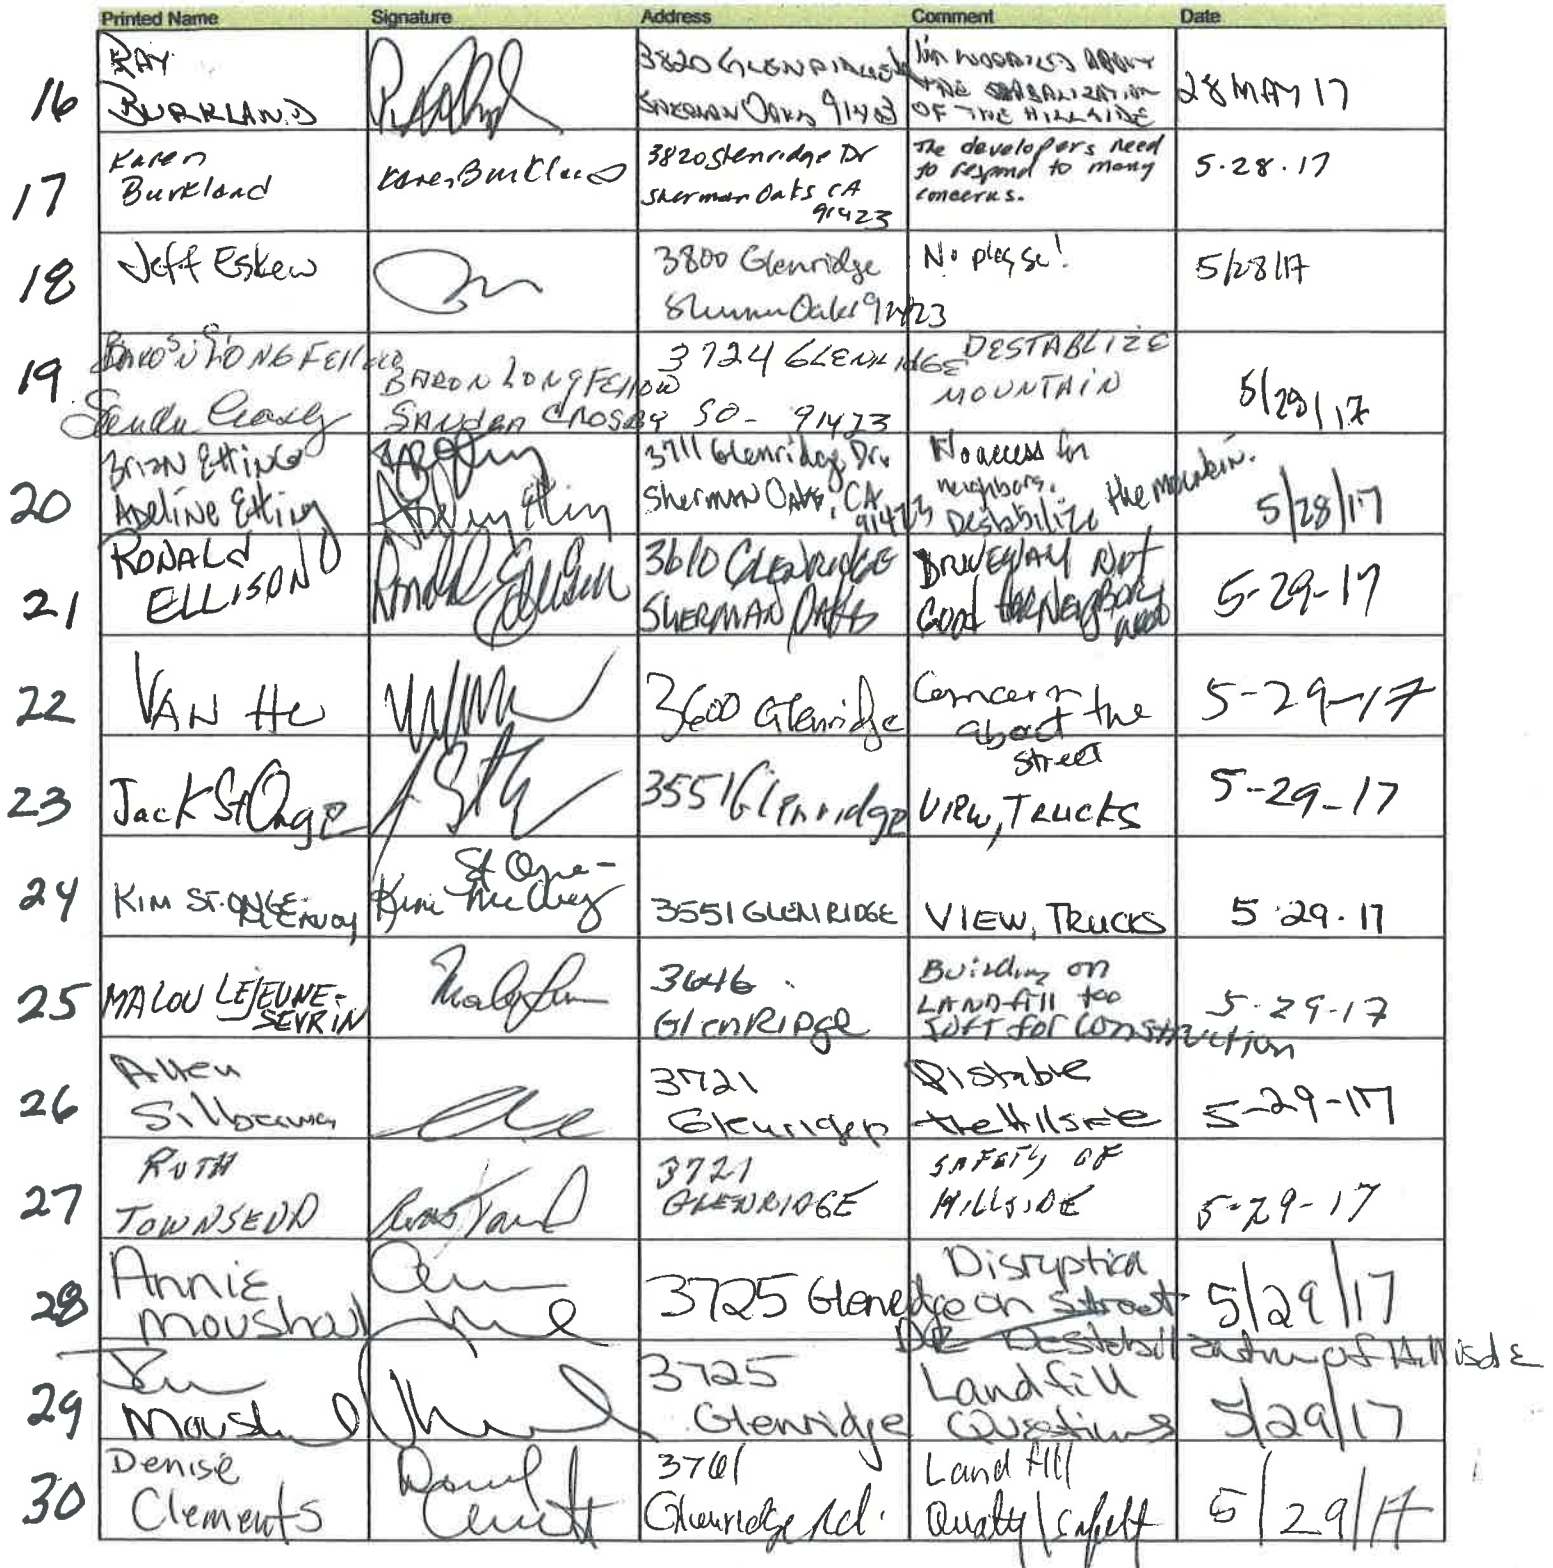 Printed Name Signature Address Comment Date
16 RAY BURKLAND 3820 GLENRIDGE SHERMAN OAKS 91403 I'M WORRIED ABOUT THE OF THE HILLSIDE 28 MAY 17
17 Karen Burkland Karen Burkland 3820 Glenridge Dr Sherman Oaks CA 91423 The developers need to respond to many concerns. 5.28.17
18 Jeff Eskew 3800 Glenridge Sherman Oaks 91423 No please! 5/28/17
19 BARON LONGFELLOW Sandra Crosby BARON LONGFELLOW SANDRA CROSBY 3724 GLENRIDGE SO- 91423 DESTABLIZE MOUNTAIN 5/29/17
20 BRIAN Etting ADELINE Etting Adeline Etting 3711 Glenridge Dr. Sherman Oaks, CA 91423 No access for neighbors. Destabilize the mountain. 5/28/17
21 RONALD ELLISON Ronald Ellison 3610 GLENRIDGE SHERMAN OAKS DRIVEWAY NOT GOOD 5-29-17
22 VAN HU 3600 Glenridge Concern about the street 5-29-17
23 Jack St Onge 3551 Glenridge VIEW, TRUCKS 5-29-17
24 KIM ST. ONGE-MCENVOY Kim St Onge- 3551 GLENRIDGE VIEW, TRUCKS 5.29.17
25 MALOU LEJEUNE-SEVRIN 3646 GlenRidge Building on LANDfill too SOFT for Construction 5-29-17
26 Allen 3721 Distable the Hillside 5-29-17
27 RUTH TOWNSEND 3721 GLENRIDGE SAFETY OF HILLSIDE 5-29-17
28 Annie Moushal 3725 Glenridge Disruption on street Destabilization of Hillside 5/29/17
29 3725 Glenridge Landfill Questions 5/29/17
30 Denise Clements 3761 Glenridge Rd. Land fill Quality/safety 5/29/17